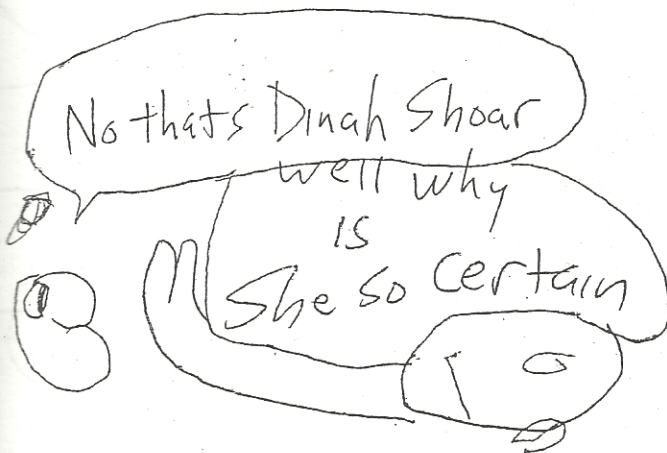 No thats Dinah Shoar
well why
is
She so certain